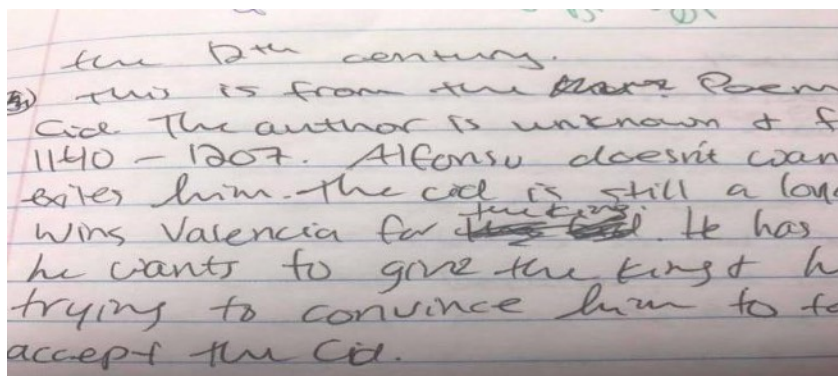 the 12th century.
3) This is from the Poem
Cid The author is unknown & f
1140 - 1207. Alfonso doesn't wan
exiles him. The cid is still a loy
wins Valencia for the king. He has
he wants to give the king & h
trying to convince him to fo
accept the Cid.